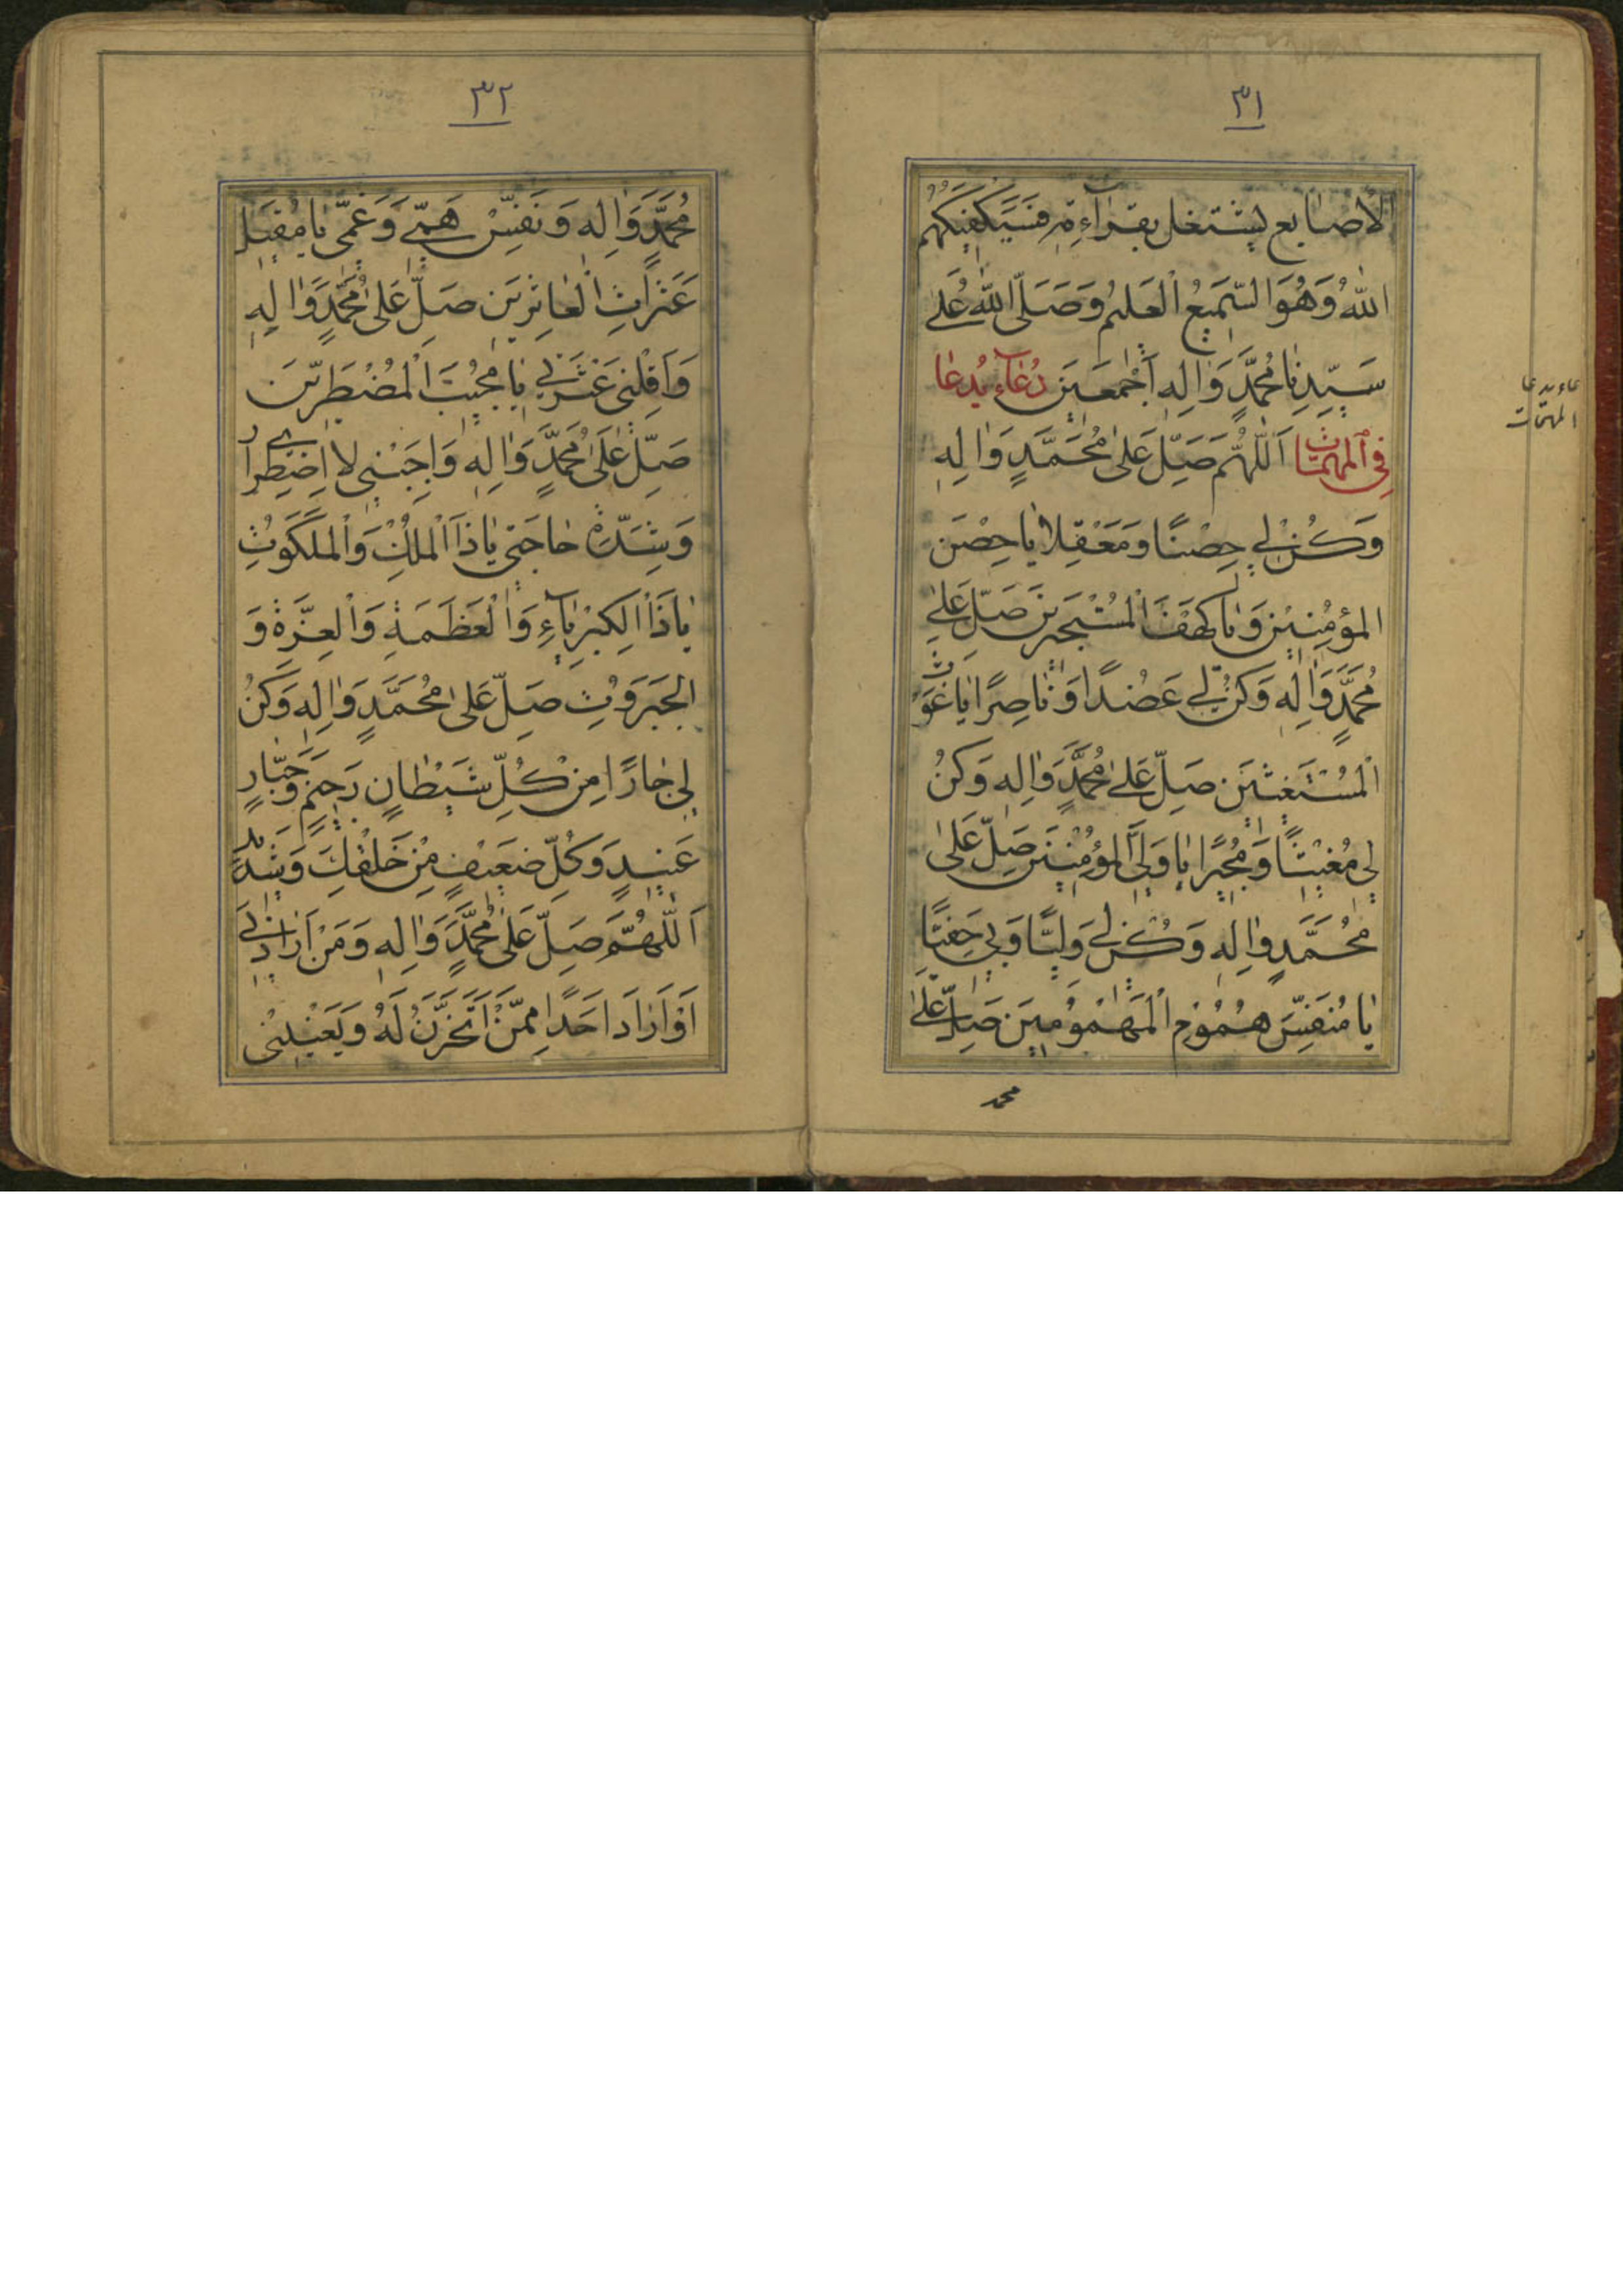 ٣١
الاصابع ليشتغل بقراءة فَسَيَكْفِيكَهُمُ
اللهُ وَهُوَ السَّمِيعُ الْعَلِيمُ وَصَلَّى اللهُ عَلٰى
سَيِّدِنَا مُحَمَّدٍ وَاٰلِهِ اَجْمَعِينَ دُعَاءٌ يُدعَا
فِي الْمُهِمَّاتِ اَللّٰهُمَّ صَلِّ عَلٰى مُحَمَّدٍ وَاٰلِهِ
وَكُنْ لِي حِصْنًا وَمَعْقِلًا يَا حِصْنَ
الْمُؤْمِنِينَ وَيَا كَهْفَ الْمُسْتَجِيرِينَ صَلِّ عَلٰى
مُحَمَّدٍ وَاٰلِهِ وَكُنْ لِي عَضُدًا وَنَاصِرًا يَا غَوْثَ
الْمُسْتَغِيثِينَ صَلِّ عَلٰى مُحَمَّدٍ وَاٰلِهِ وَكُنْ
لِي مُغِيثًا وَمُجِيرًا يَا وَلِيَّ الْمُؤْمِنِينَ صَلِّ عَلٰى
مُحَمَّدٍ وَاٰلِهِ وَكُنْ لِي وَلِيًّا وَبِي حَفِيًّا
يَا مُنَفِّسَ هُمُومِ الْمَهْمُومِينَ صَلِّ عَلٰى
محمد
المهمات
٣٢
مُحَمَّدٍ وَاٰلِهِ وَنَفِّسْ هَمِّي وَغَمِّي يَا مُقِيلَ
عَثَرَاتِ الْعَاثِرِينَ صَلِّ عَلٰى مُحَمَّدٍ وَاٰلِهِ
وَاَقِلْنِي عَثْرَتِي يَا مُجِيبَ الْمُضْطَرِّينَ
صَلِّ عَلٰى مُحَمَّدٍ وَاٰلِهِ وَاَجِبْنِي لِاضْطِرَارِي
وَشِدَّةِ حَاجَتِي يَا ذَا الْمُلْكِ وَالْمَلَكُوتِ
يَا ذَا الْكِبْرِيَاءِ وَالْعَظَمَةِ وَالْعِزَّةِ وَ
الْجَبَرُوتِ صَلِّ عَلٰى مُحَمَّدٍ وَاٰلِهِ وَكُنْ
لِي جَارًا مِنْ كُلِّ شَيْطَانٍ رَجِيمٍ وَجَبَّارٍ
عَنِيدٍ وَكُلِّ ضَعِيفٍ مِنْ خَلْقِكَ وَشَدِيدٍ
اَللّٰهُمَّ صَلِّ عَلٰى مُحَمَّدٍ وَاٰلِهِ وَمَنْ اَرَادَنِي
اَوْ اَرَادَ اَحَدًا مِمَّنْ اَتَحَزَّنُ لَهُ وَيَعْنِينِي